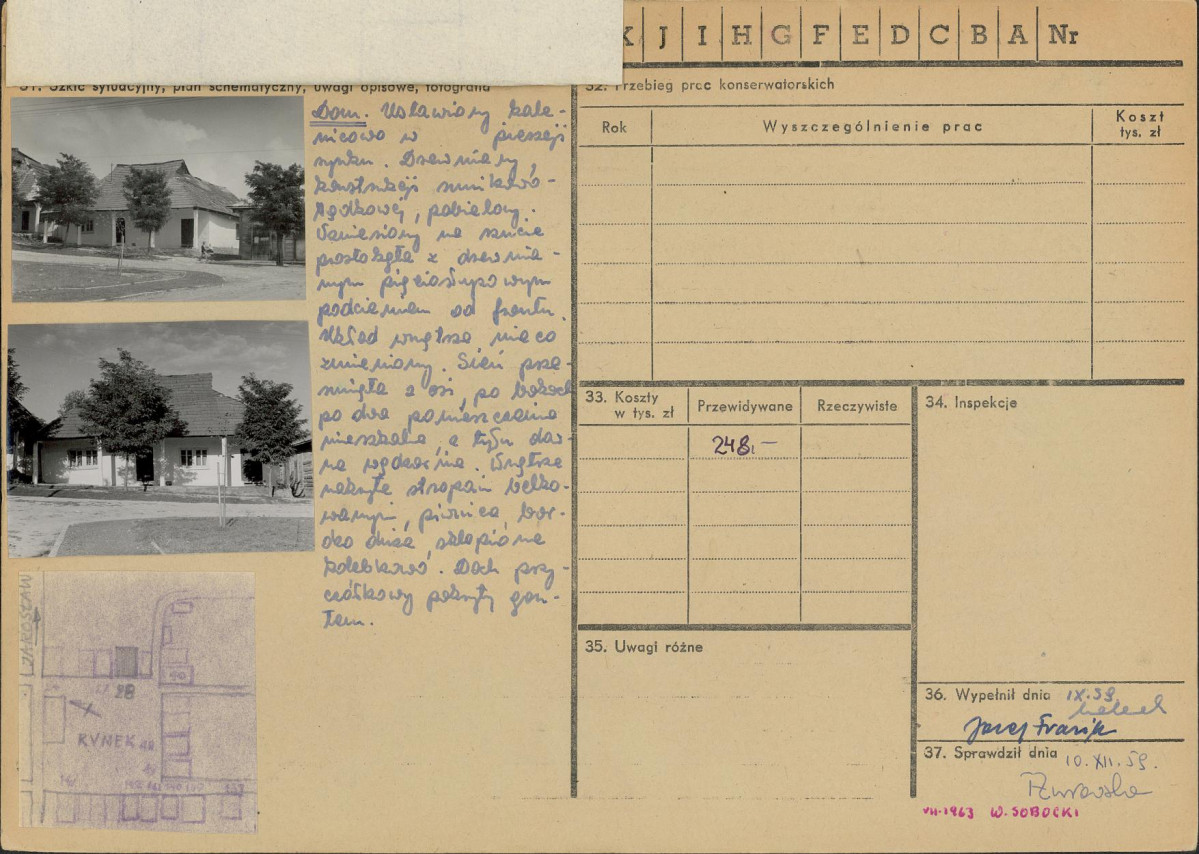 K J I H G F E D C B A Nr
31. Szkic sytuacyjny, plan schematyczny, uwagi opisowe, fotografia
Dom. Ustawiony kale-
nicowo w pierzei
rynku. Drewniany,
konstrukcji sumikowo-
łątkowej, pobielony.
Wzniesiony na rzucie
prostokąta z drewnia-
nym pięciosłupowym
podcieniem od frontu.
Układ wnętrza nieco
zmieniony. Sień prze-
sunięta z osi, po bokach
po dwa pomieszczenia
mieszkalne, z tyłu daw-
na wędzarnia. Wnętrza
nakryte stropami belko-
wanymi, piwnica, bar-
dzo duża, sklepiona
kolebkowo. Dach przy-
czółkowy pokryty gon-
tem.
JAROSŁAW
28
90
RYNEK
32. Przebieg prac konserwatorskich
Rok
Wyszczególnienie prac
Koszt
tys. zł
33. Koszty
w tys. zł
Przewidywane
Rzeczywiste
248,-
34. Inspekcje
35. Uwagi różne
36. Wypełnił dnia IX.59
Józef Frazik
37. Sprawdził dnia 10.XII.59.
VII-1963 W. SOBOCKI